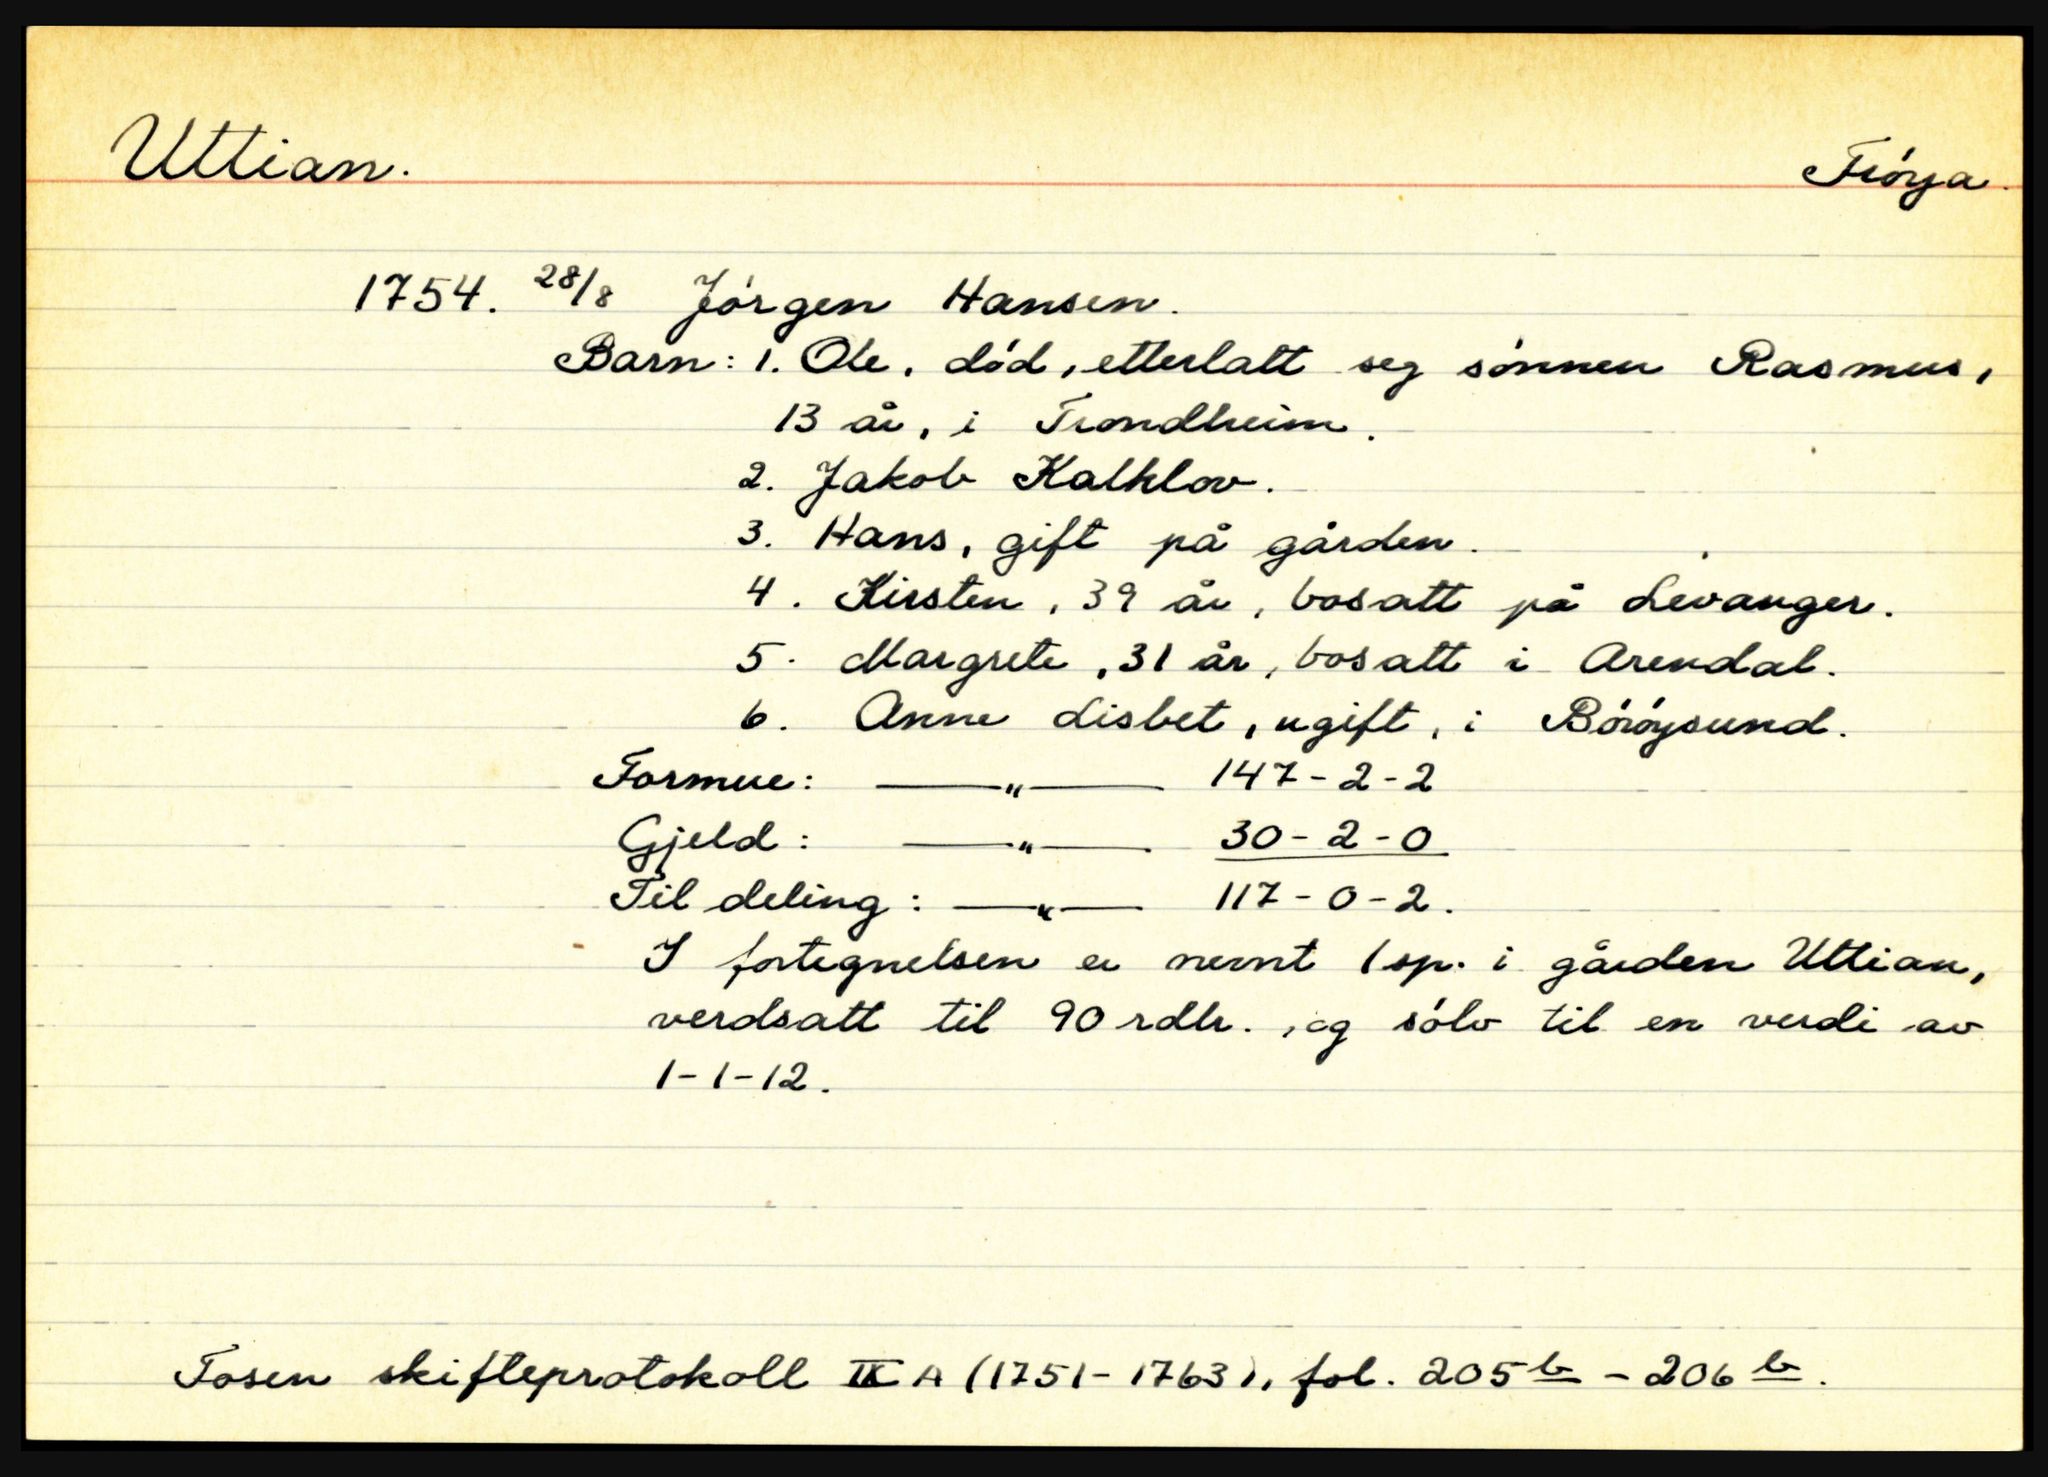 Uttian.
Fröya.
1754. 28/8 Jörgen Hansen.
Barn: 1. Ole, död, etterlatt seg sönnen Rasmus,
13 år, i Trondheim.
2. Jakob Kalklov.
3. Hans, gift på gården.
4. Kirsten, 39 år, bosatt på Levanger.
5. Margrete, 31 år, bosatt i Arendal.
6. Anne Lisbet, ugift, i Böröysund.
Formue: —"— 147-2-2
Gjeld: —"— 30-2-0
Til deling: —"— 117-0-2.
I fortegnelsen er nevnt 1 sp. i gården Uttian,
verdsatt til 90 rdlr., og sölv til en verdi av
1-1-12.
Fosen skifteprotokoll II A (1751-1763), fol. 205 b - 206 b.